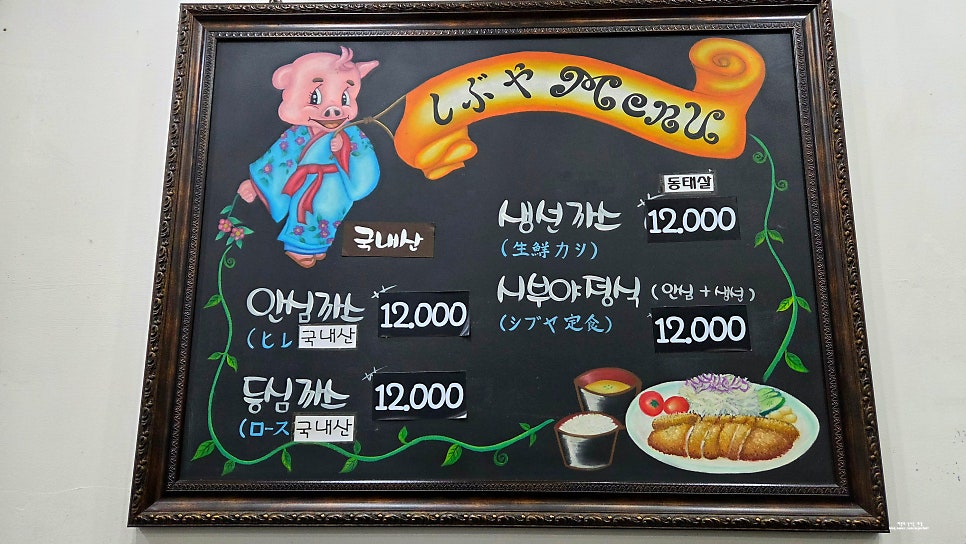 しぶや MENU
국내산
안심까스 12.000
(ヒレ 국내산
등심까스 12.000
(ロース 국내산
동태살
생선까스 12.000
(生鮮カシ)
시부야정식 (안심+생선)
(シブヤ定食) 12.000